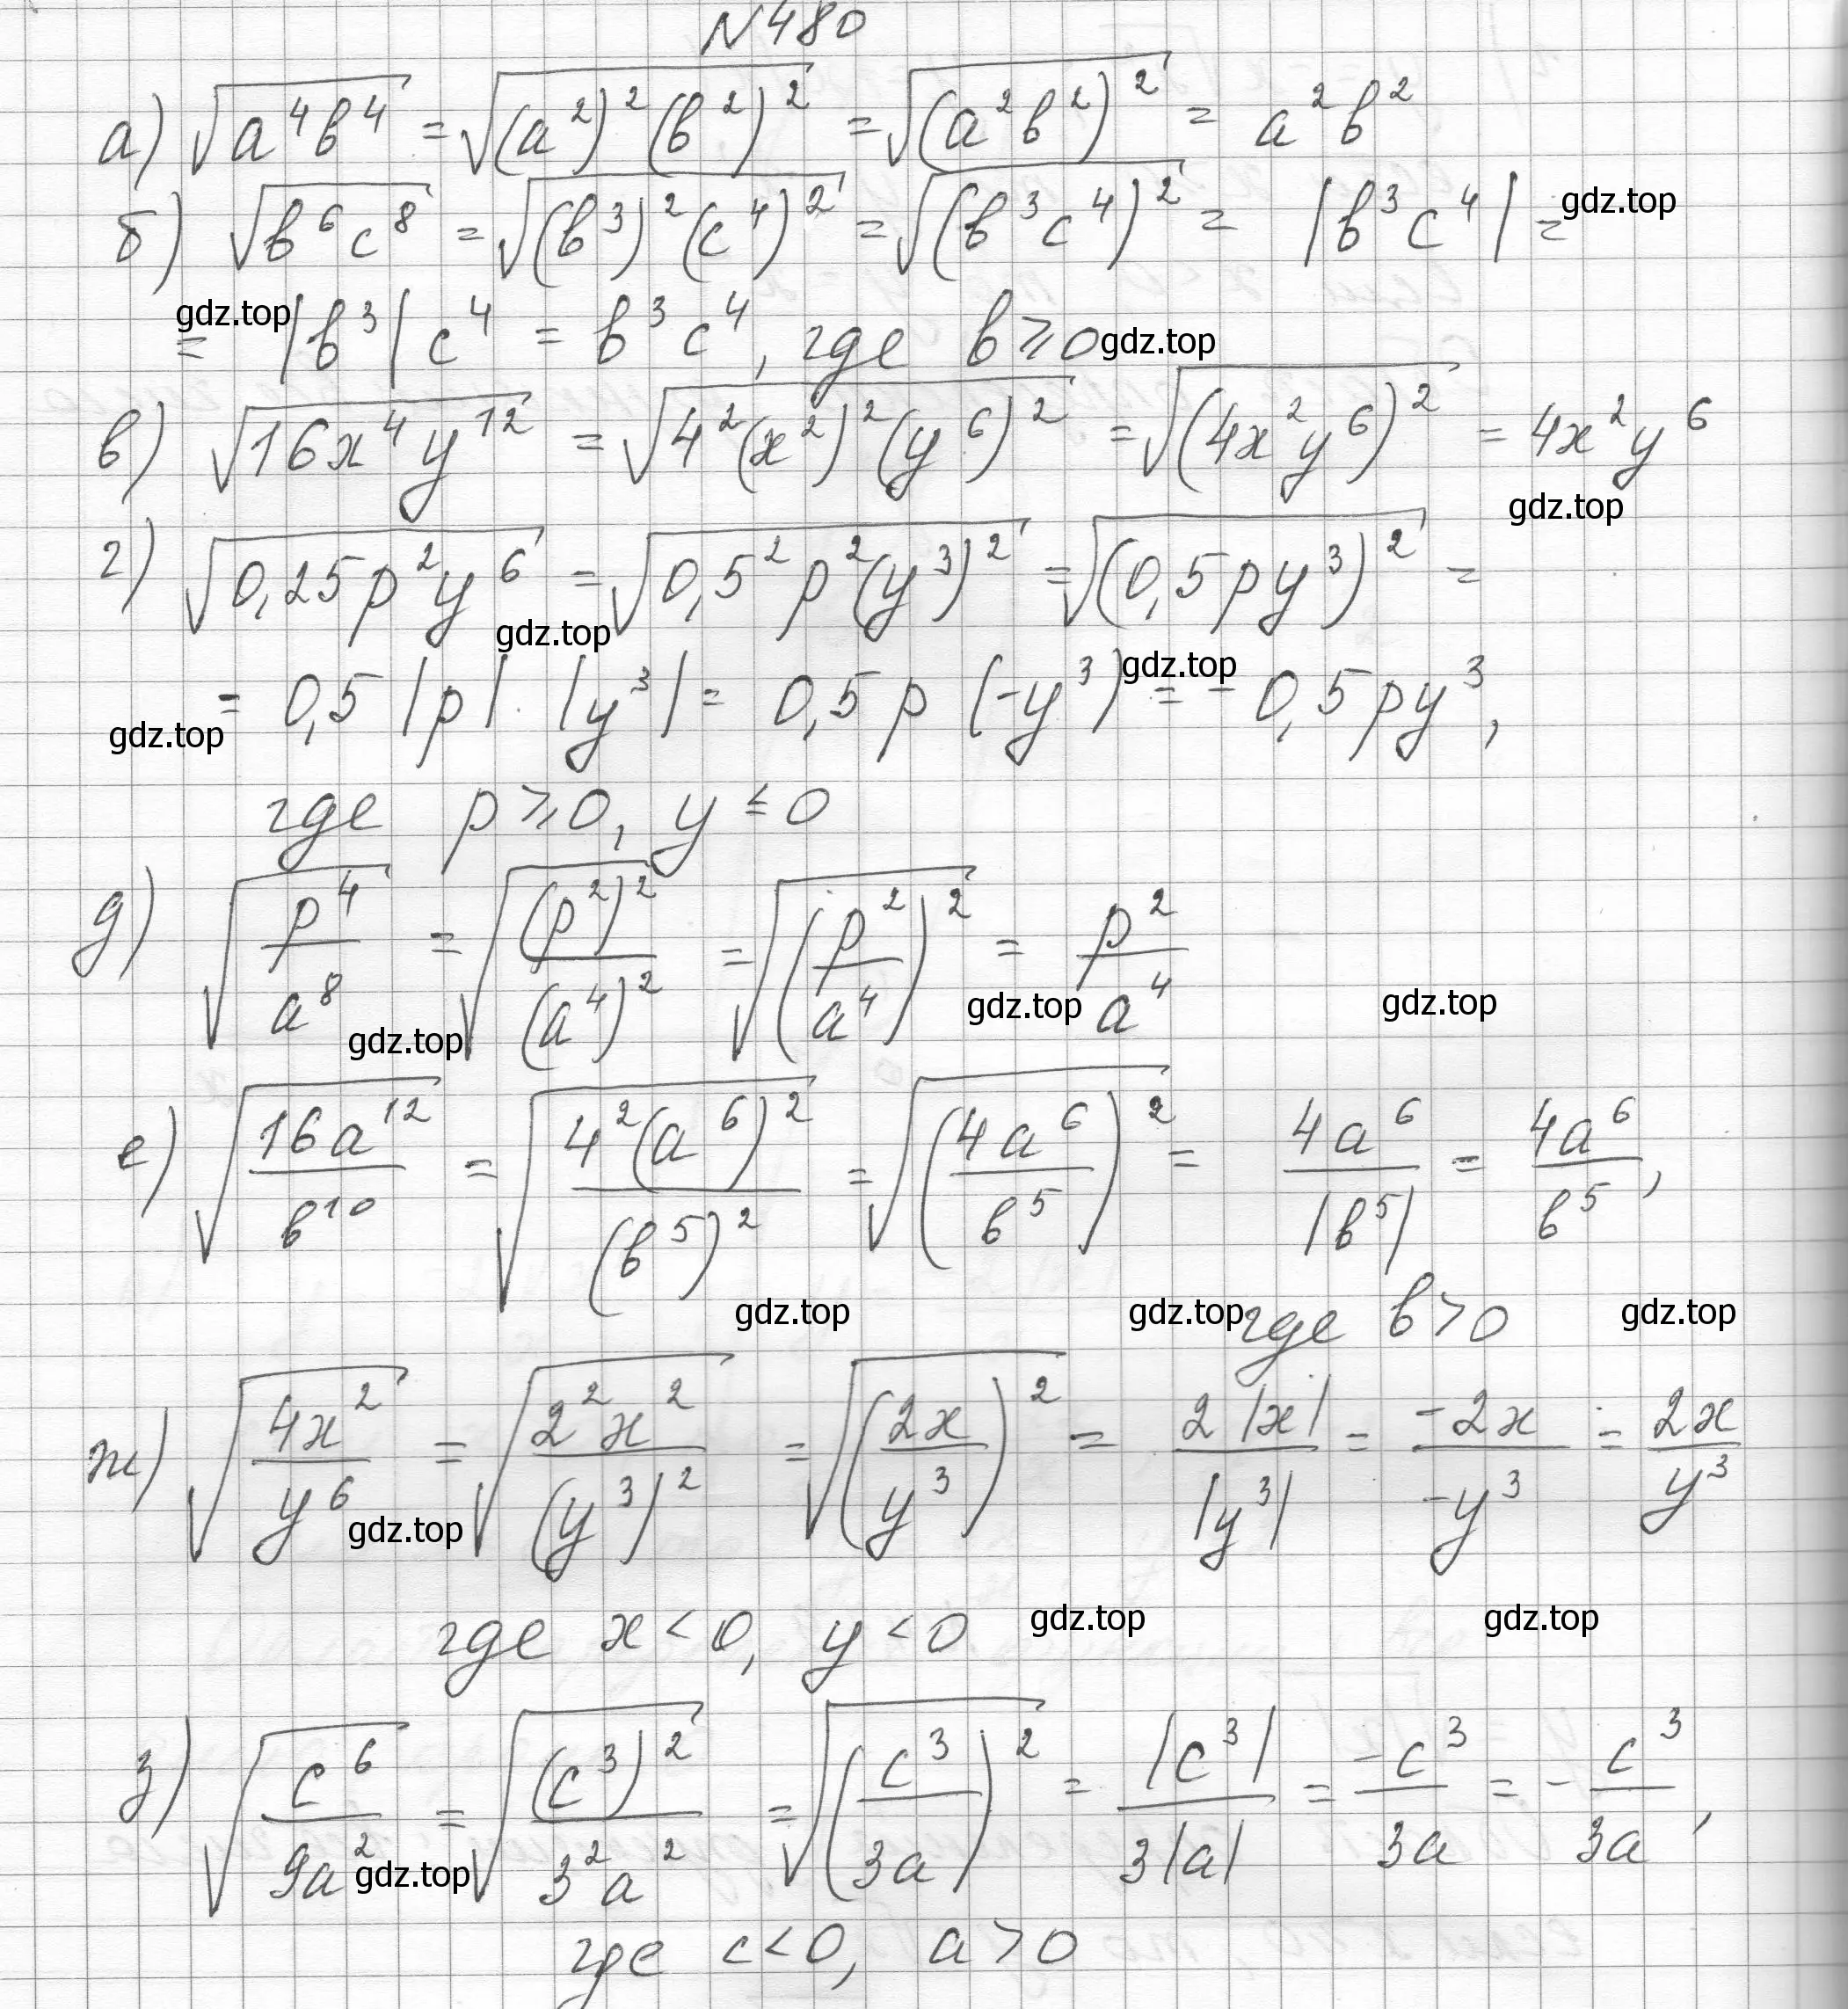 N480
а) √(a⁴b⁴) = √((a²)²(b²)²) = √((a²b²)²) = a²b²
б) √(b⁶c⁸) = √((b³)²(c⁴)²) = √((b³c⁴)²) = |b³c⁴| = gdz.top
gdz.top = |b³|c⁴ = b³c⁴, где b ⩾ 0 gdz.top
в) √(16x⁴y¹²) = √(4²(x²)²(y⁶)²) = √((4x²y⁶)²) = 4x²y⁶
gdz.top
г) √(0,25p²y⁶) = √(0,5²p²(y³)²) = √((0,5py³)²) =
gdz.top
gdz.top = 0,5|p|·|y³| = 0,5p(-y³) = -0,5py³, gdz.top
где p ⩾ 0, y ≤ 0
д) √(p⁴/a⁸) = √((p²)²/(a⁴)²) = √((p²/a⁴)²) = p²/a⁴
gdz.top gdz.top gdz.top
е) √(16a¹²/b¹⁰) = √(4²(a⁶)²/(b⁵)²) = √((4a⁶/b⁵)²) = 4a⁶/|b⁵| = 4a⁶/b⁵,
gdz.top gdz.top где b > 0 gdz.top
ж) √(4x²/y⁶) = √(2²x²/(y³)²) = √((2x/y³)²) = 2|x|/|y³| = -2x/-y³ = 2x/y³
gdz.top
где x < 0, y < 0 gdz.top gdz.top
з) √(c⁶/9a²) = √((c³)²/3²a²) = √((c³/3a)²) = |c³|/3|a| = -c³/3a = -c³/3a,
gdz.top
где c < 0, a > 0